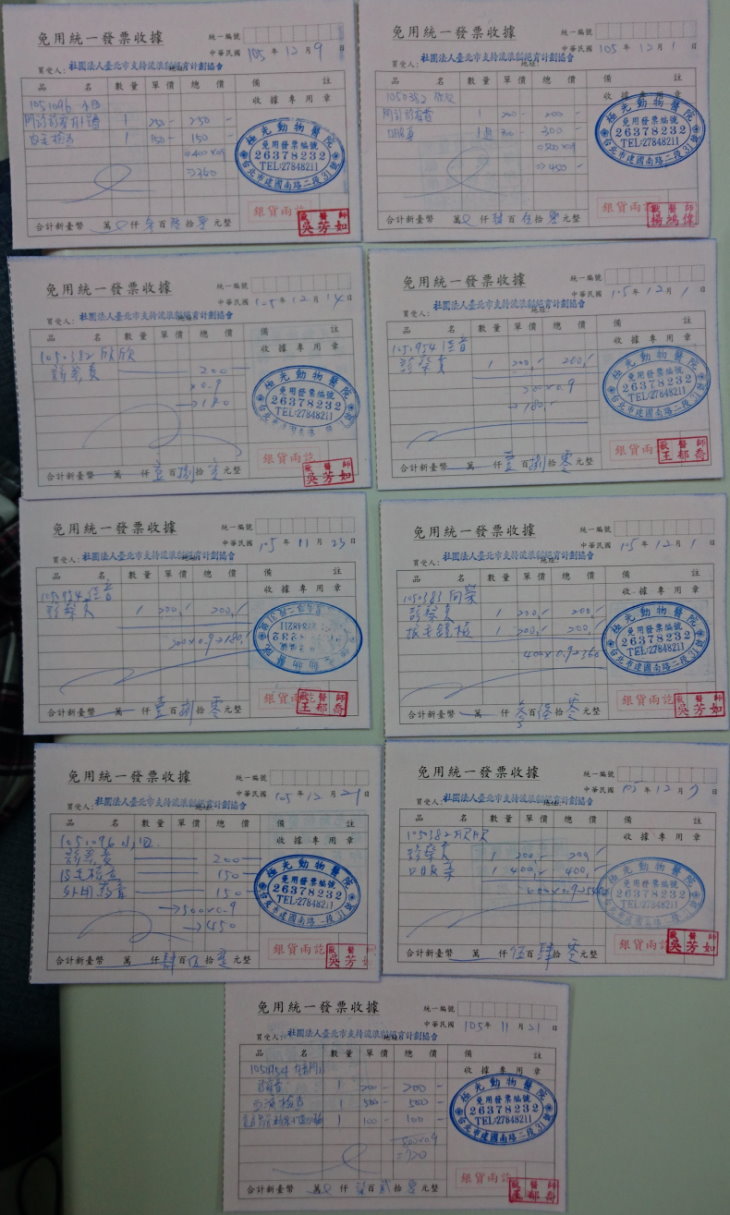 免用統一發票收據
統一編號
中華民國 105 年 12 月 9 日
買受人：社團法人臺北市支持流浪貓絕育計劃協會
地址：
品 名 數量 單價 總 價 備 註
收據專用章
1051096
1 250- 250-
1 150- 150-
→360
極光動物醫院
免用發票編號
26378232
TEL:27848211
台北市建國南路二段31號
銀貨兩訖
獸醫師
吳芳如
合計新臺幣 萬 仟 叁 百 陸 拾 零 元整
免用統一發票收據
統一編號
中華民國 105 年 12 月 1 日
買受人：社團法人臺北市支持流浪貓絕育計劃協會
地址：
品 名 數量 單價 總 價 備 註
收據專用章
1050382 欣欣
1 200- 200-
→450-
極光動物醫院
免用發票編號
26378232
TEL:27848211
台北市建國南路二段31號
銀貨兩訖
獸醫師
楊鴻偉
合計新臺幣 萬 仟 肆 百 伍 拾 零 元整
免用統一發票收據
統一編號
中華民國 105 年 12 月 14 日
買受人：社團法人臺北市支持流浪貓絕育計劃協會
地址：
品 名 數量 單價 總 價 備 註
收據專用章
1050382 欣欣
診察費 200-
×0.9
→180
極光動物醫院
免用發票編號
26378232
TEL:27848211
銀貨兩訖
獸醫師
吳芳如
合計新臺幣 萬 仟 壹 百 捌 拾 零 元整
免用統一發票收據
統一編號
中華民國 105 年 12 月 1 日
買受人：社團法人臺北市支持流浪貓絕育計劃協會
地址：
品 名 數量 單價 總 價 備 註
收據專用章
1050954 佳音
診察費 1 200,- 200,-
200×0.9
→180,-
極光動物醫院
免用發票編號
26378232
TEL:27848211
台北市建國南路二段31號
銀貨兩訖
獸醫師
王郁喬
合計新臺幣 萬 仟 壹 百 捌 拾 零 元整
免用統一發票收據
統一編號
中華民國 105 年 11 月 23 日
買受人：社團法人臺北市支持流浪貓絕育計劃協會
地址：
品 名 數量 單價 總 價 備 註
收據專用章
1050954 佳音
診察費 1 200,- 200,-
200×0.9=180,-
極光動物醫院
銀貨兩訖
獸醫師
王郁喬
合計新臺幣 萬 仟 壹 百 捌 拾 零 元整
免用統一發票收據
統一編號
中華民國 105 年 12 月 1 日
買受人：社團法人臺北市支持流浪貓絕育計劃協會
地址：
品 名 數量 單價 總 價 備 註
收據專用章
診察費 1 200,- 200,-
1 200,- 200,-
400×0.9=360
極光動物醫院
免用發票編號
26378232
TEL:27848211
台北市建國南路二段31號
銀貨兩訖
獸醫師
吳芳如
合計新臺幣 萬 仟 百 拾 零 元整
免用統一發票收據
統一編號
中華民國 105 年 12 月 日
買受人：社團法人臺北市支持流浪貓絕育計劃協會
地址：
品 名 數量 單價 總 價 備 註
收據專用章
1051096
診察費 200-
150-
外用藥膏 150-
→500×0.9
→450
極光動物醫院
免用發票編號
26378232
TEL:27848211
銀貨兩訖
獸醫師
吳芳如
合計新臺幣 萬 仟 肆 百 伍 拾 零 元整
免用統一發票收據
統一編號
中華民國 105 年 12 月 日
買受人：社團法人臺北市支持流浪貓絕育計劃協會
地址：
品 名 數量 單價 總 價 備 註
收據專用章
1050382 欣欣
診察費 1 200,- 200,-
口服藥 1 400,- 400,-
600×0.9=540
極光動物醫院
免用發票編號
26378232
TEL:27848211
銀貨兩訖
獸醫師
吳芳如
合計新臺幣 萬 仟 伍 百 肆 拾 零 元整
免用統一發票收據
統一編號
中華民國 105 年 11 月 21 日
買受人：社團法人臺北市支持流浪貓絕育計劃協會
地址：
品 名 數量 單價 總 價 備 註
收據專用章
1 200- 200-
1 500- 500-
1 100- 100-
800×0.9
=720
極光動物醫院
免用發票編號
26378232
TEL:27848211
台北市建國南路二段31號
銀貨兩訖
獸醫師
王郁喬
合計新臺幣 萬 仟 柒 百 貳 拾 零 元整